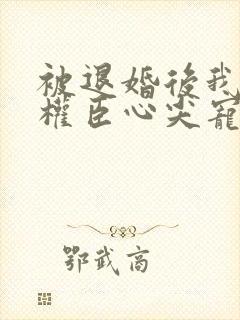 被退婚後我
權臣心尖寵
鄂武商